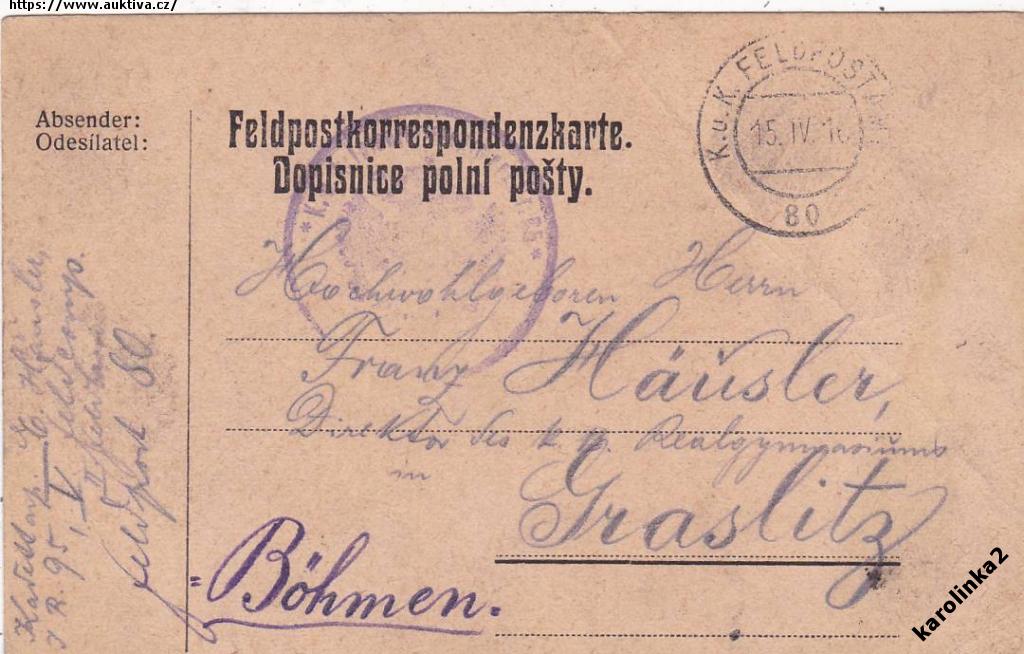 https://www.auktiva.cz/
Absender:
Odesílatel:
Feldpostkorrespondenzkarte.
Dopisnice polní pošty.
K.u.K. FELDPOSTAMT
15. IV. 16
80
Hochwohlgeboren Herrn
Franz Häusler,
Direktor des k. k. Realgymnasiums
in
Graslitz
Böhmen.
E. Häusler,
I R. 95, V Feldkomp.
Feldpost 80.
karolinka2